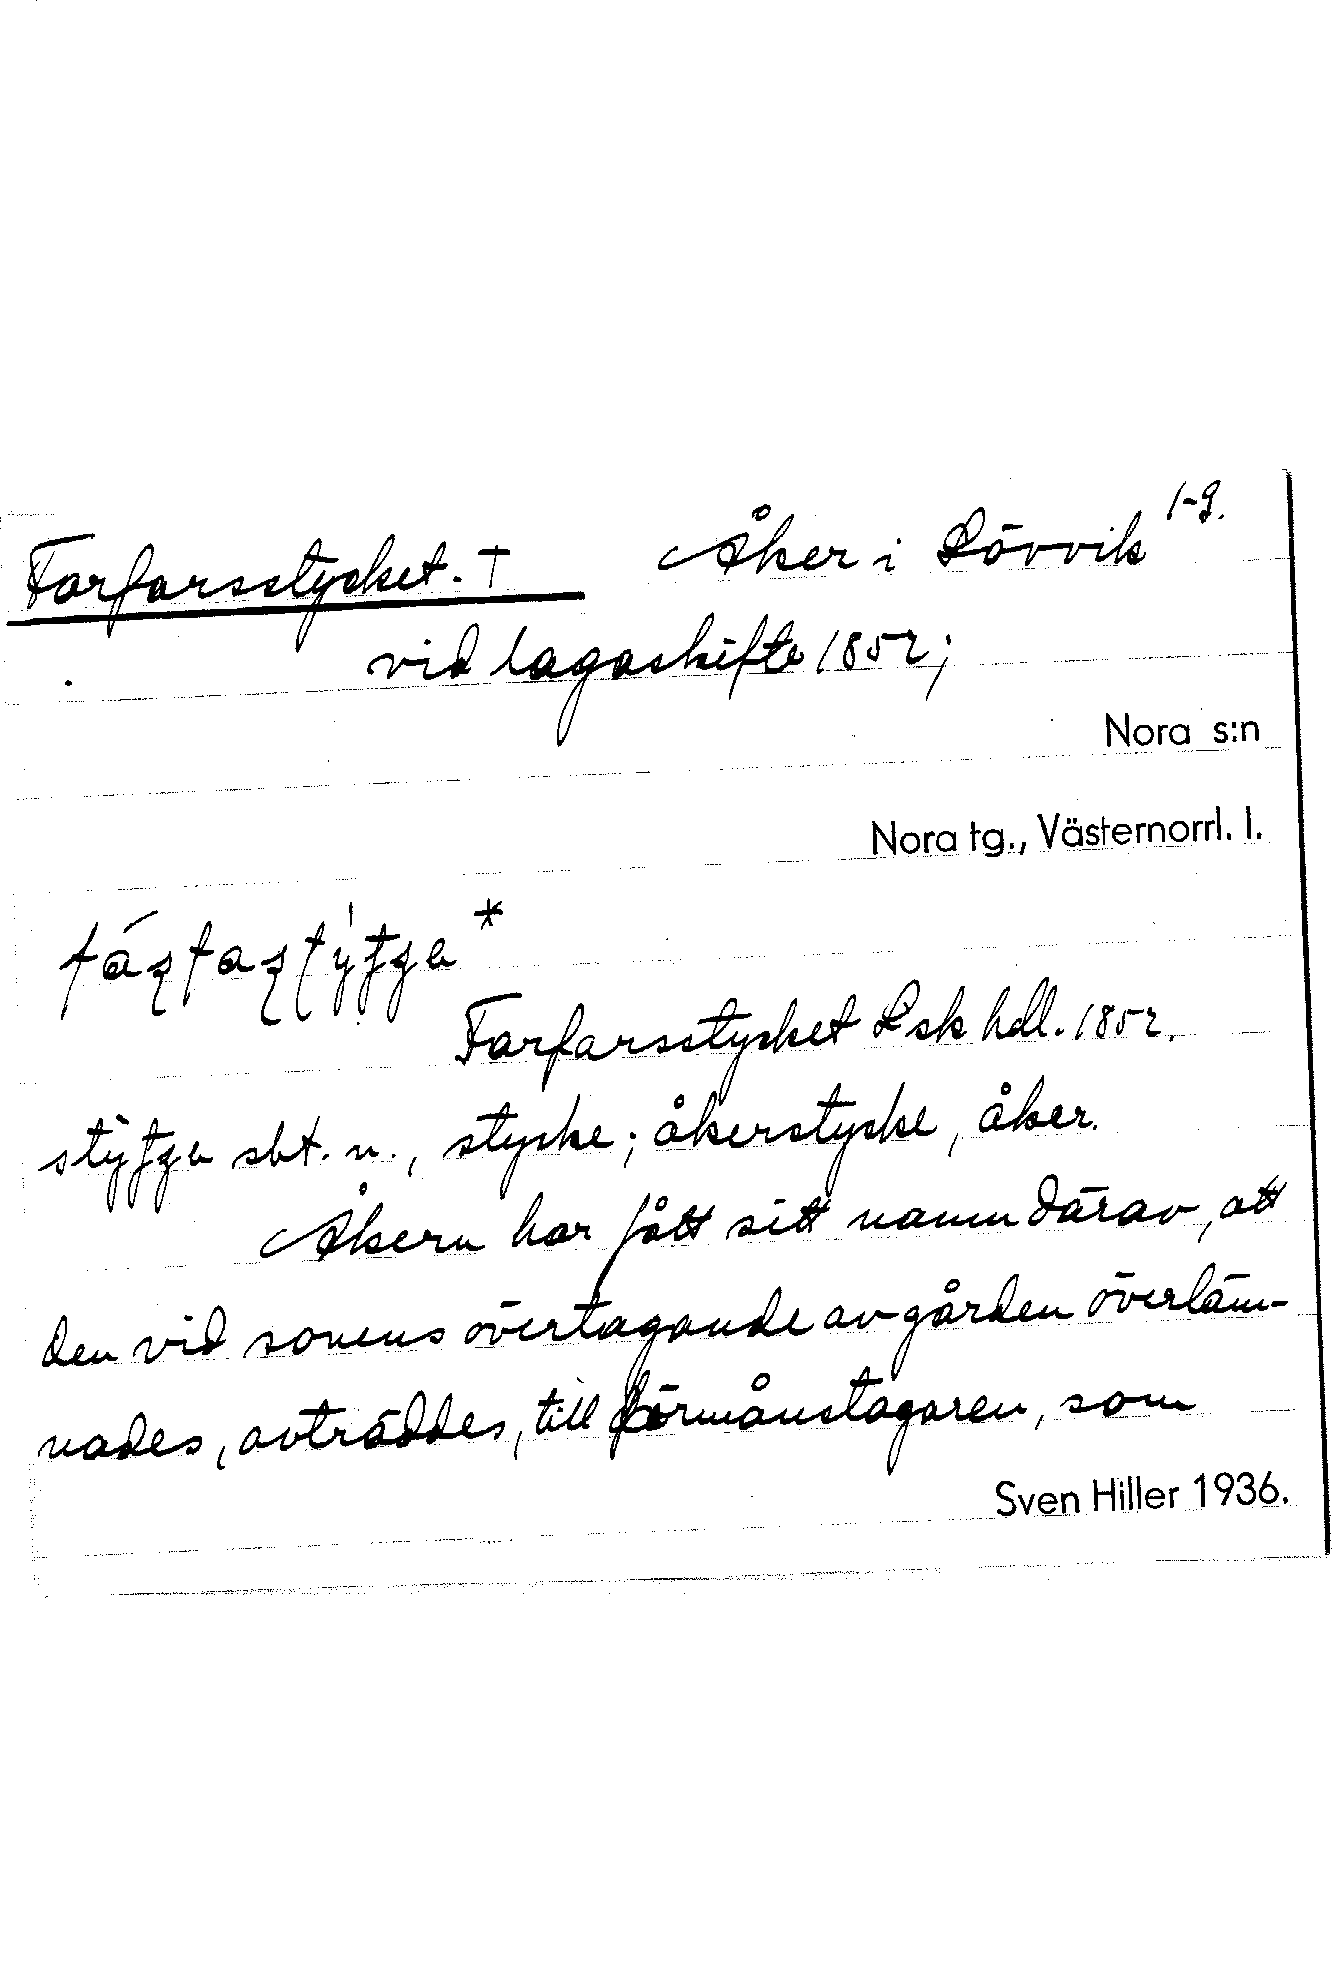 Farfarsstycket. † Åker i Lövvik 1-9.
vid lagaskifte 1852;
Nora s:n
Nora tg., Västernorrl. l.
Farfarsstycket Lsk hdl. 1852.
sbt. n., stycke; åkerstycke, åker.
Åkern har fått sitt namn därav, att
den vid sonens övertagande av gården överläm-
nades, avträddes, till förmånstagaren, som
Sven Hiller 1936.